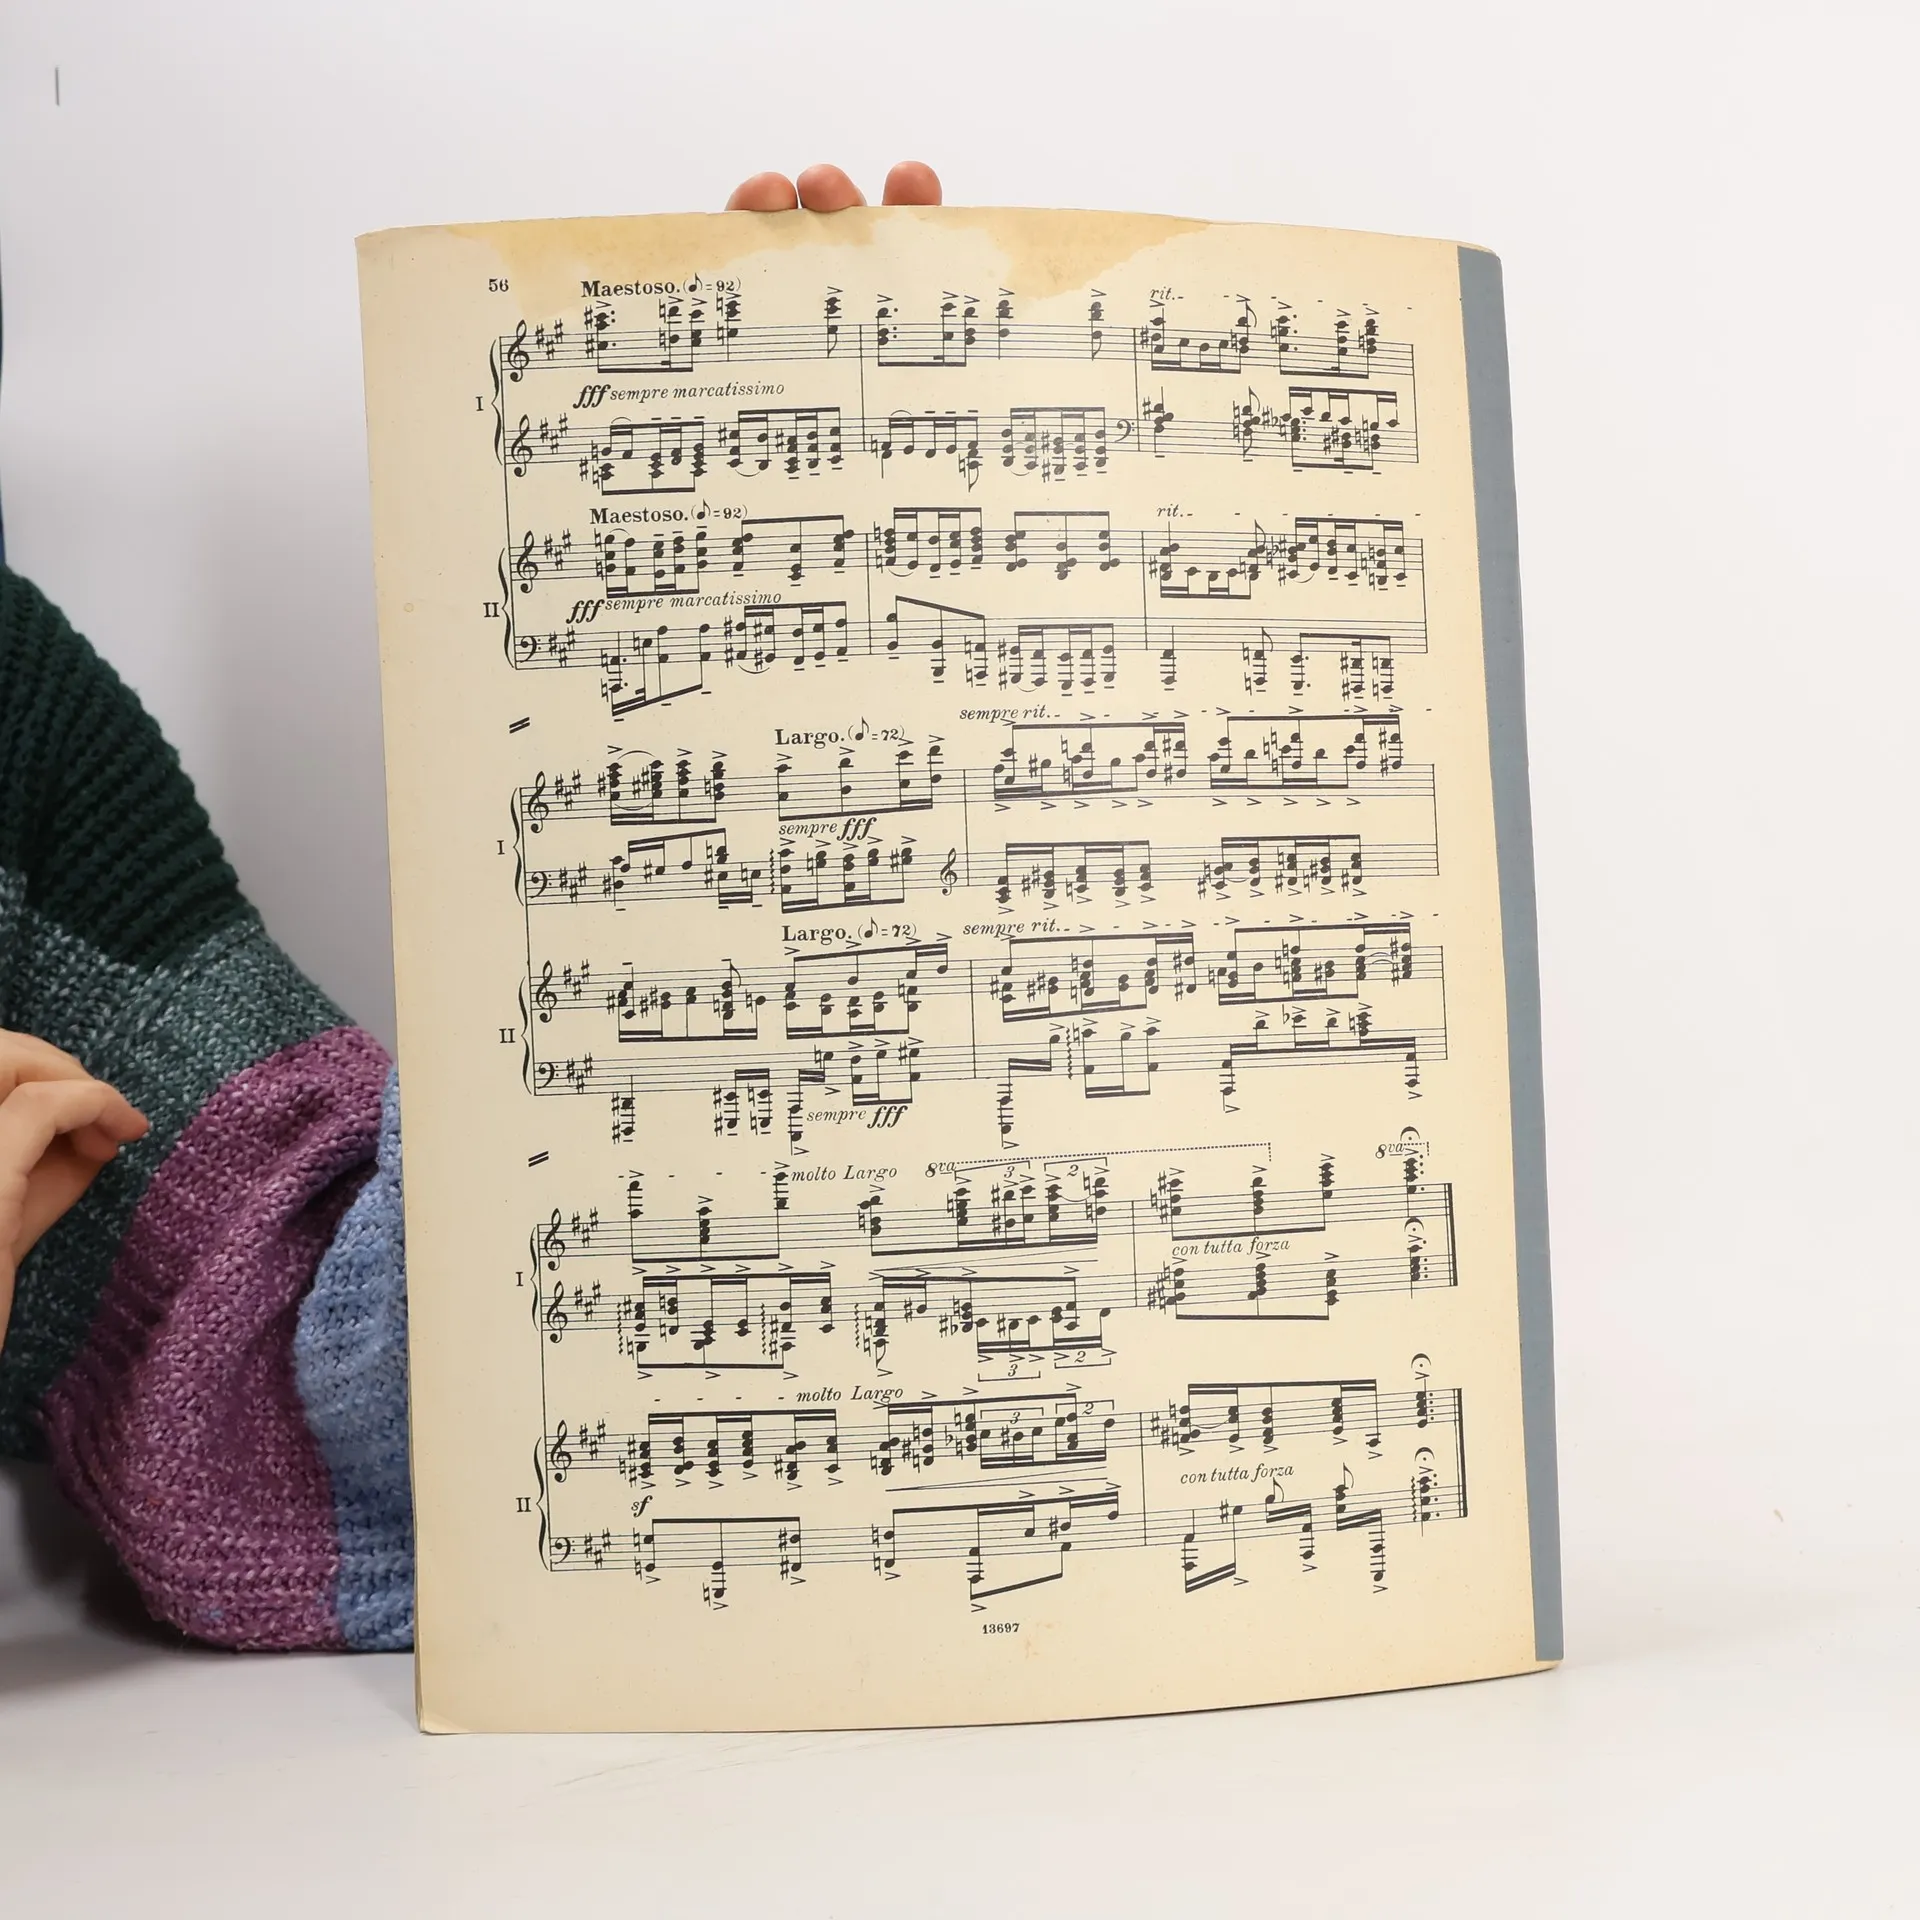 56
Maestoso. (♪=92)
rit. - - - - - -
I
fff sempre marcatissimo
Maestoso. (♪=92)
rit. - - - - - -
II
fff sempre marcatissimo
sempre rit. - - - - - -
Largo. (♪=72)
I
sempre fff
Largo. (♪=72)
sempre rit. - - - - - -
II
sempre fff
- - - - molto Largo
8va
3
2
8va
con tutta forza
I
3
2
- - - - molto Largo
3
2
sf
con tutta forza
II
13697